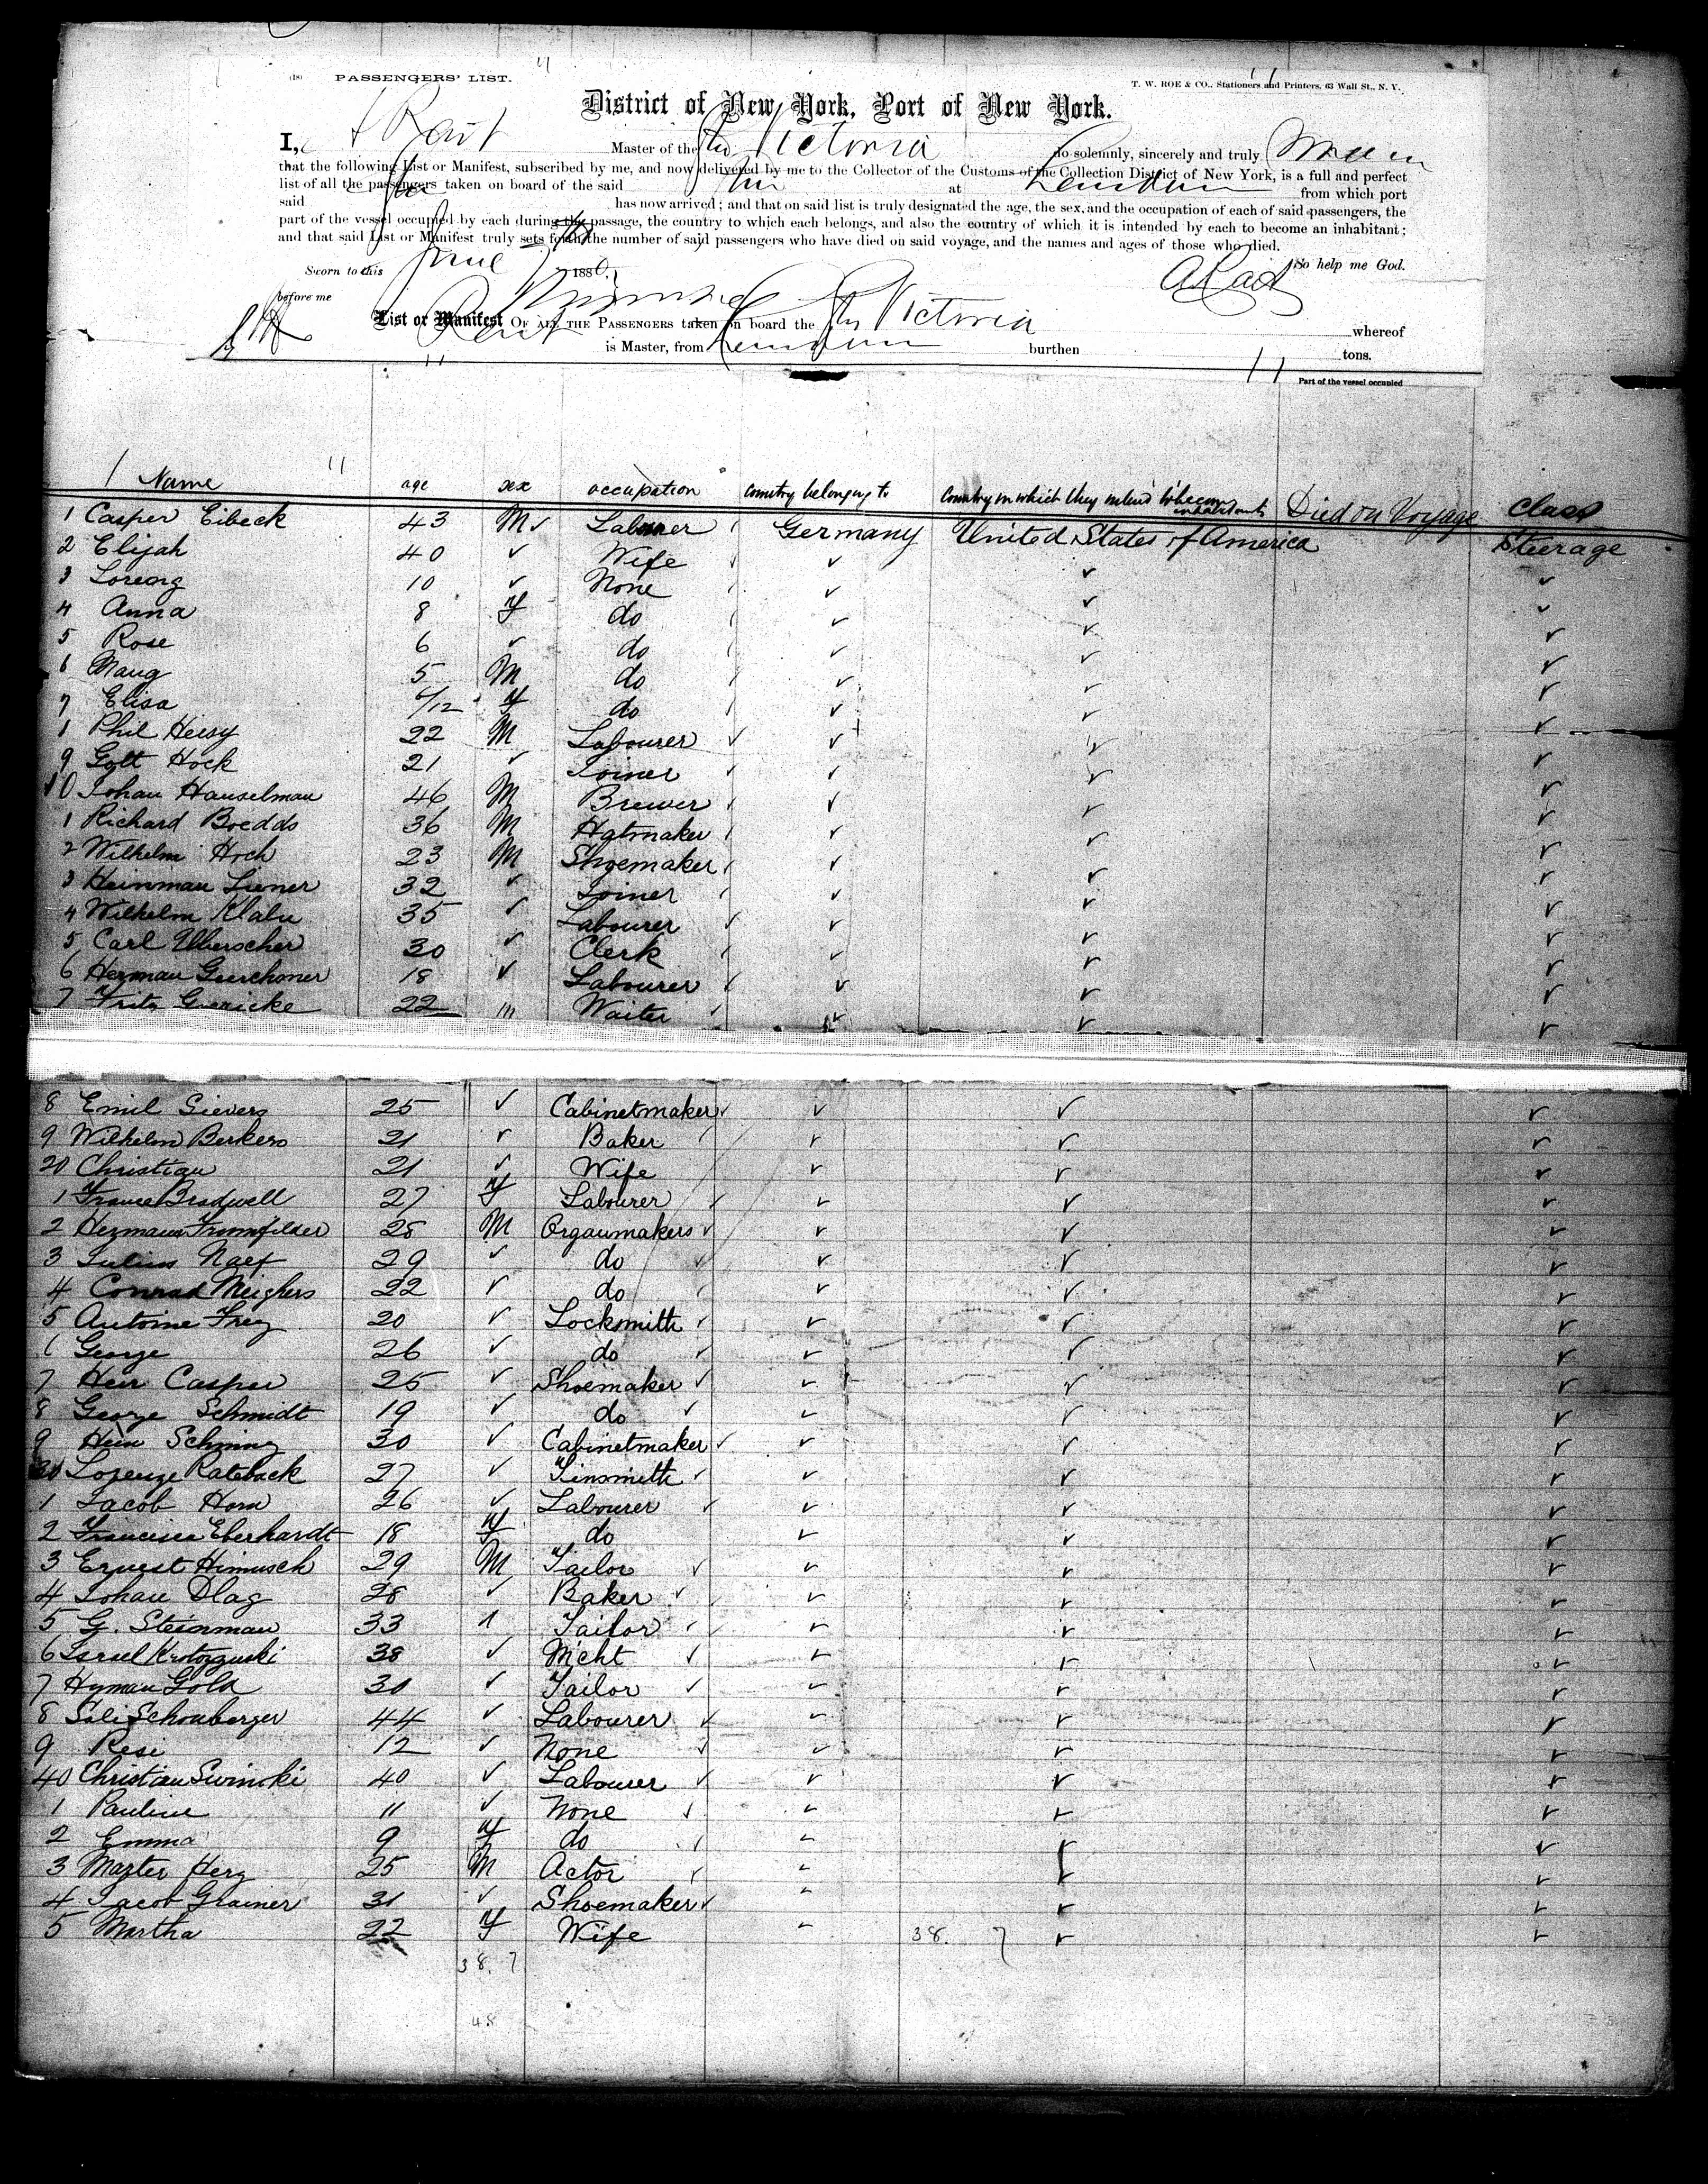 (18) PASSENGERS' LIST.
T. W. ROE & CO., Stationers and Printers, 63 Wall St., N. Y.
District of New York, Port of New York.
I, Master of the Str Victoria do solemnly, sincerely and truly
that the following List or Manifest, subscribed by me, and now delivered by me to the Collector of the Customs of the Collection District of New York, is a full and perfect
list of all the passengers taken on board of the said Str at London from which port
said has now arrived; and that on said list is truly designated the age, the sex, and the occupation of each of said passengers, the
part of the vessel occupied by each during the passage, the country to which each belongs, and also the country of which it is intended by each to become an inhabitant;
and that said List or Manifest truly sets forth the number of said passengers who have died on said voyage, and the names and ages of those who died.
Sworn to this June 1880, So help me God.
before me
List or Manifest OF ALL THE PASSENGERS taken on board the Str Victoria whereof
is Master, from London burthen tons.
Part of the vessel occupied
Name age sex occupation Country belonging to Country in which they intend to become inhabitants Died on Voyage Class
1 Casper Eibeck 43 M ✓ Labourer Germany United States of America Steerage
2 Elijah 40 ✓ Wife ✓ ✓ ✓
3 Loreng 10 ✓ None ✓ ✓ ✓
4 Anna 8 F do ✓ ✓ ✓
5 Rose 6 ✓ do ✓ ✓ ✓
6 Maug 5 M do ✓ ✓ ✓
7 Elisa 6/12 F do ✓ ✓ ✓
1 Phil Heisy 22 M Labourer ✓ ✓ ✓ ✓
9 Gott Hock 21 ✓ Joiner ✓ ✓ ✓
10 Johan Hauselman 46 M Brewer ✓ ✓ ✓
1 Richard Boedds 36 M Hatmaker ✓ ✓ ✓
2 Wilhelm Hoch 23 M Shoemaker ✓ ✓ ✓
3 Heinman 32 ✓ Joiner ✓ ✓ ✓
4 Wilhelm Klalu 35 ✓ Labourer ✓ ✓ ✓ ✓
5 Carl 30 ✓ Clerk ✓ ✓ ✓
6 Herman 18 ✓ Labourer ✓ ✓ ✓
7 Fritz Guericke 22 Waiter ✓ ✓ ✓
8 Emil Sievers 25 ✓ Cabinetmaker ✓ ✓ ✓ ✓
9 Wilhelm Berkers 21 ✓ Baker ✓ ✓ ✓
20 Christian 21 ✓ Wife ✓ ✓ ✓
1 Bradwell 27 F Labourer ✓ ✓ ✓ ✓
2 Hermann Frumfilder 28 M Organmakers ✓ ✓ ✓ ✓
3 Julius Naef 29 ✓ do ✓ ✓ ✓ ✓
4 Conrad Meighers 22 ✓ do ✓ ✓ ✓
5 Antoine Frey 20 ✓ Locksmith ✓ ✓ ✓ ✓
6 George 26 ✓ do ✓ ✓ ✓ ✓
7 Heir Casper 25 ✓ Shoemaker ✓ ✓ ✓ ✓
8 George Schmidt 19 ✓ do ✓ ✓ ✓ ✓
9 Hein Schming 30 ✓ Cabinetmaker ✓ ✓ ✓ ✓
30 Lorenze Rateback 27 ✓ Tinsmith ✓ ✓ ✓ ✓
1 Jacob Horn 26 ✓ Labourer ✓ ✓ ✓ ✓
2 Francisca Eberhardt 18 F do ✓ ✓ ✓
3 Ernest Himusch 29 M Tailor ✓ ✓ ✓ ✓
4 Johan Olag 28 ✓ Baker ✓ ✓ ✓ ✓
5 G. Steinman 33 Tailor ✓ ✓ ✓ ✓
6 Israel Krotozguski 38 ✓ Mcht ✓ ✓ ✓ ✓
7 Hyman Gold 30 ✓ Tailor ✓ ✓ ✓ ✓
8 Sali Schonberger 44 ✓ Labourer ✓ ✓ ✓ ✓
9 Resi 12 ✓ None ✓ ✓ ✓ ✓
40 Christian Swinoki 40 ✓ Labourer ✓ ✓ ✓ ✓
1 Pauline 11 ✓ None ✓ ✓ ✓ ✓
2 Emma 9 F do ✓ ✓ ✓
3 Marter Herz 25 M Actor ✓ ✓ ✓
4 Jacob Grainer 31 ✓ Shoemaker ✓ ✓ ✓ ✓
5 Martha 22 F Wife ✓ 38. 7 ✓ ✓
38. 7
48